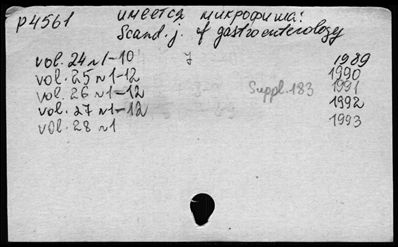 p4561 имеется микрофиша:
Scand. j. of gastroenterology
vol. 24 N1-10 1989
vol. 25 N1-12 1990
vol. 26 N1-12 Suppl. 183 1991
vol. 27 N1-12 1992
vol. 28 N1 1993